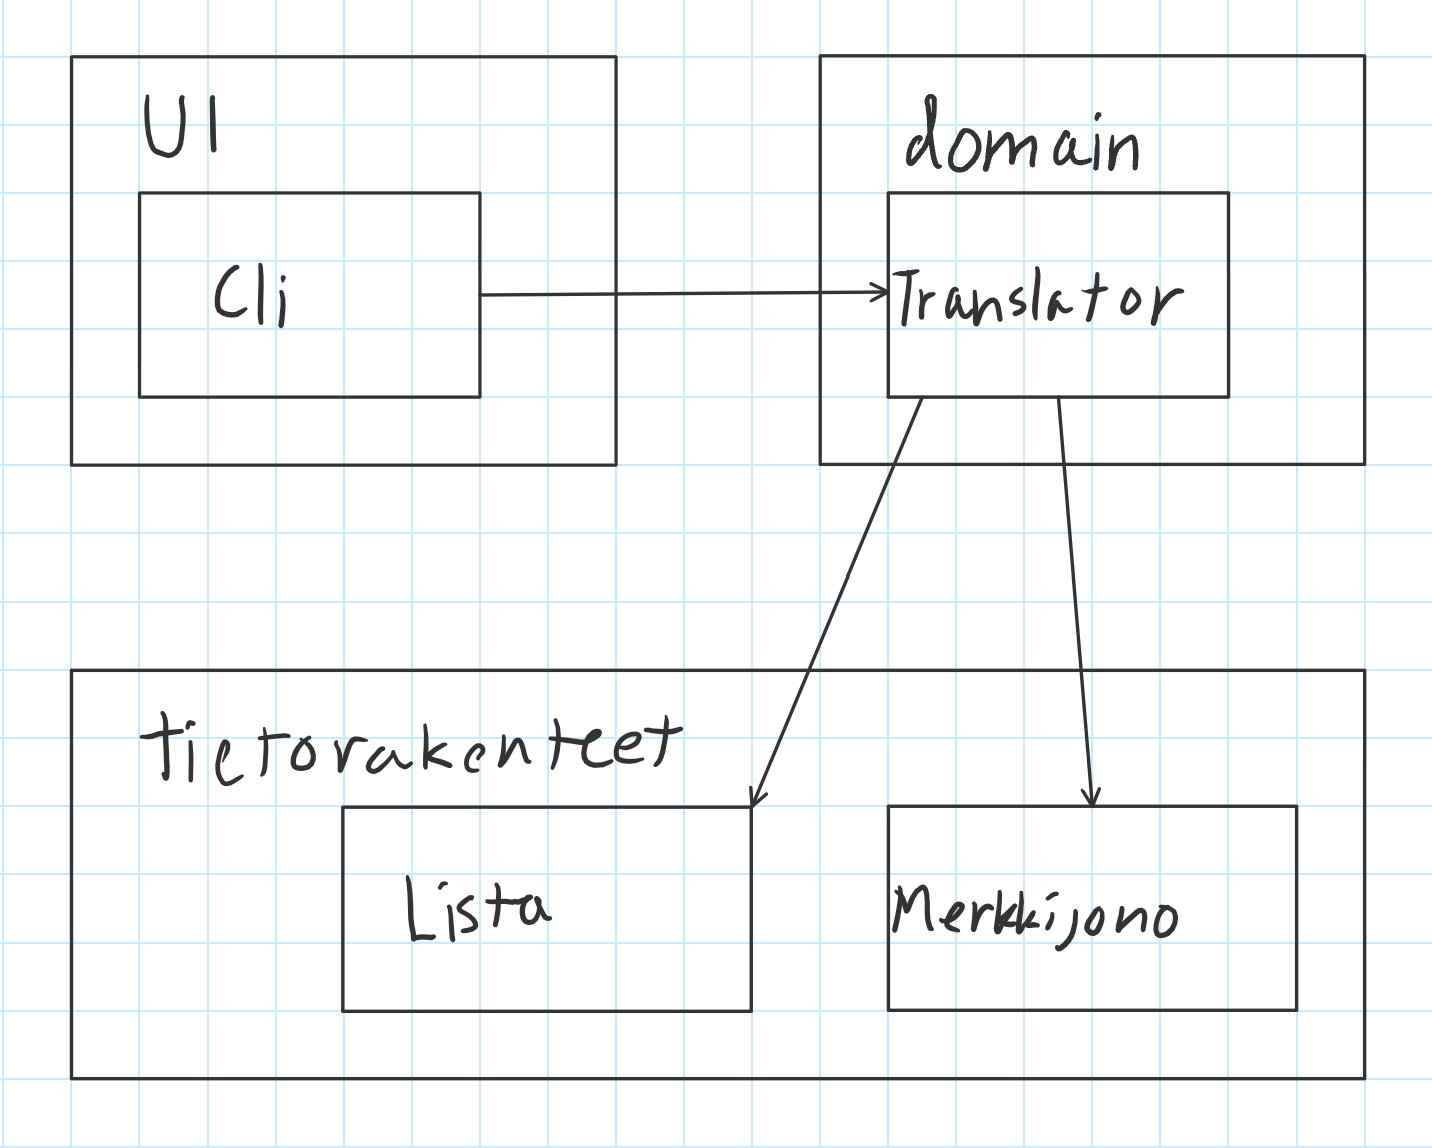 UI
domain
Cli
Translator
tietorakenteet
Lista
Merkkijono